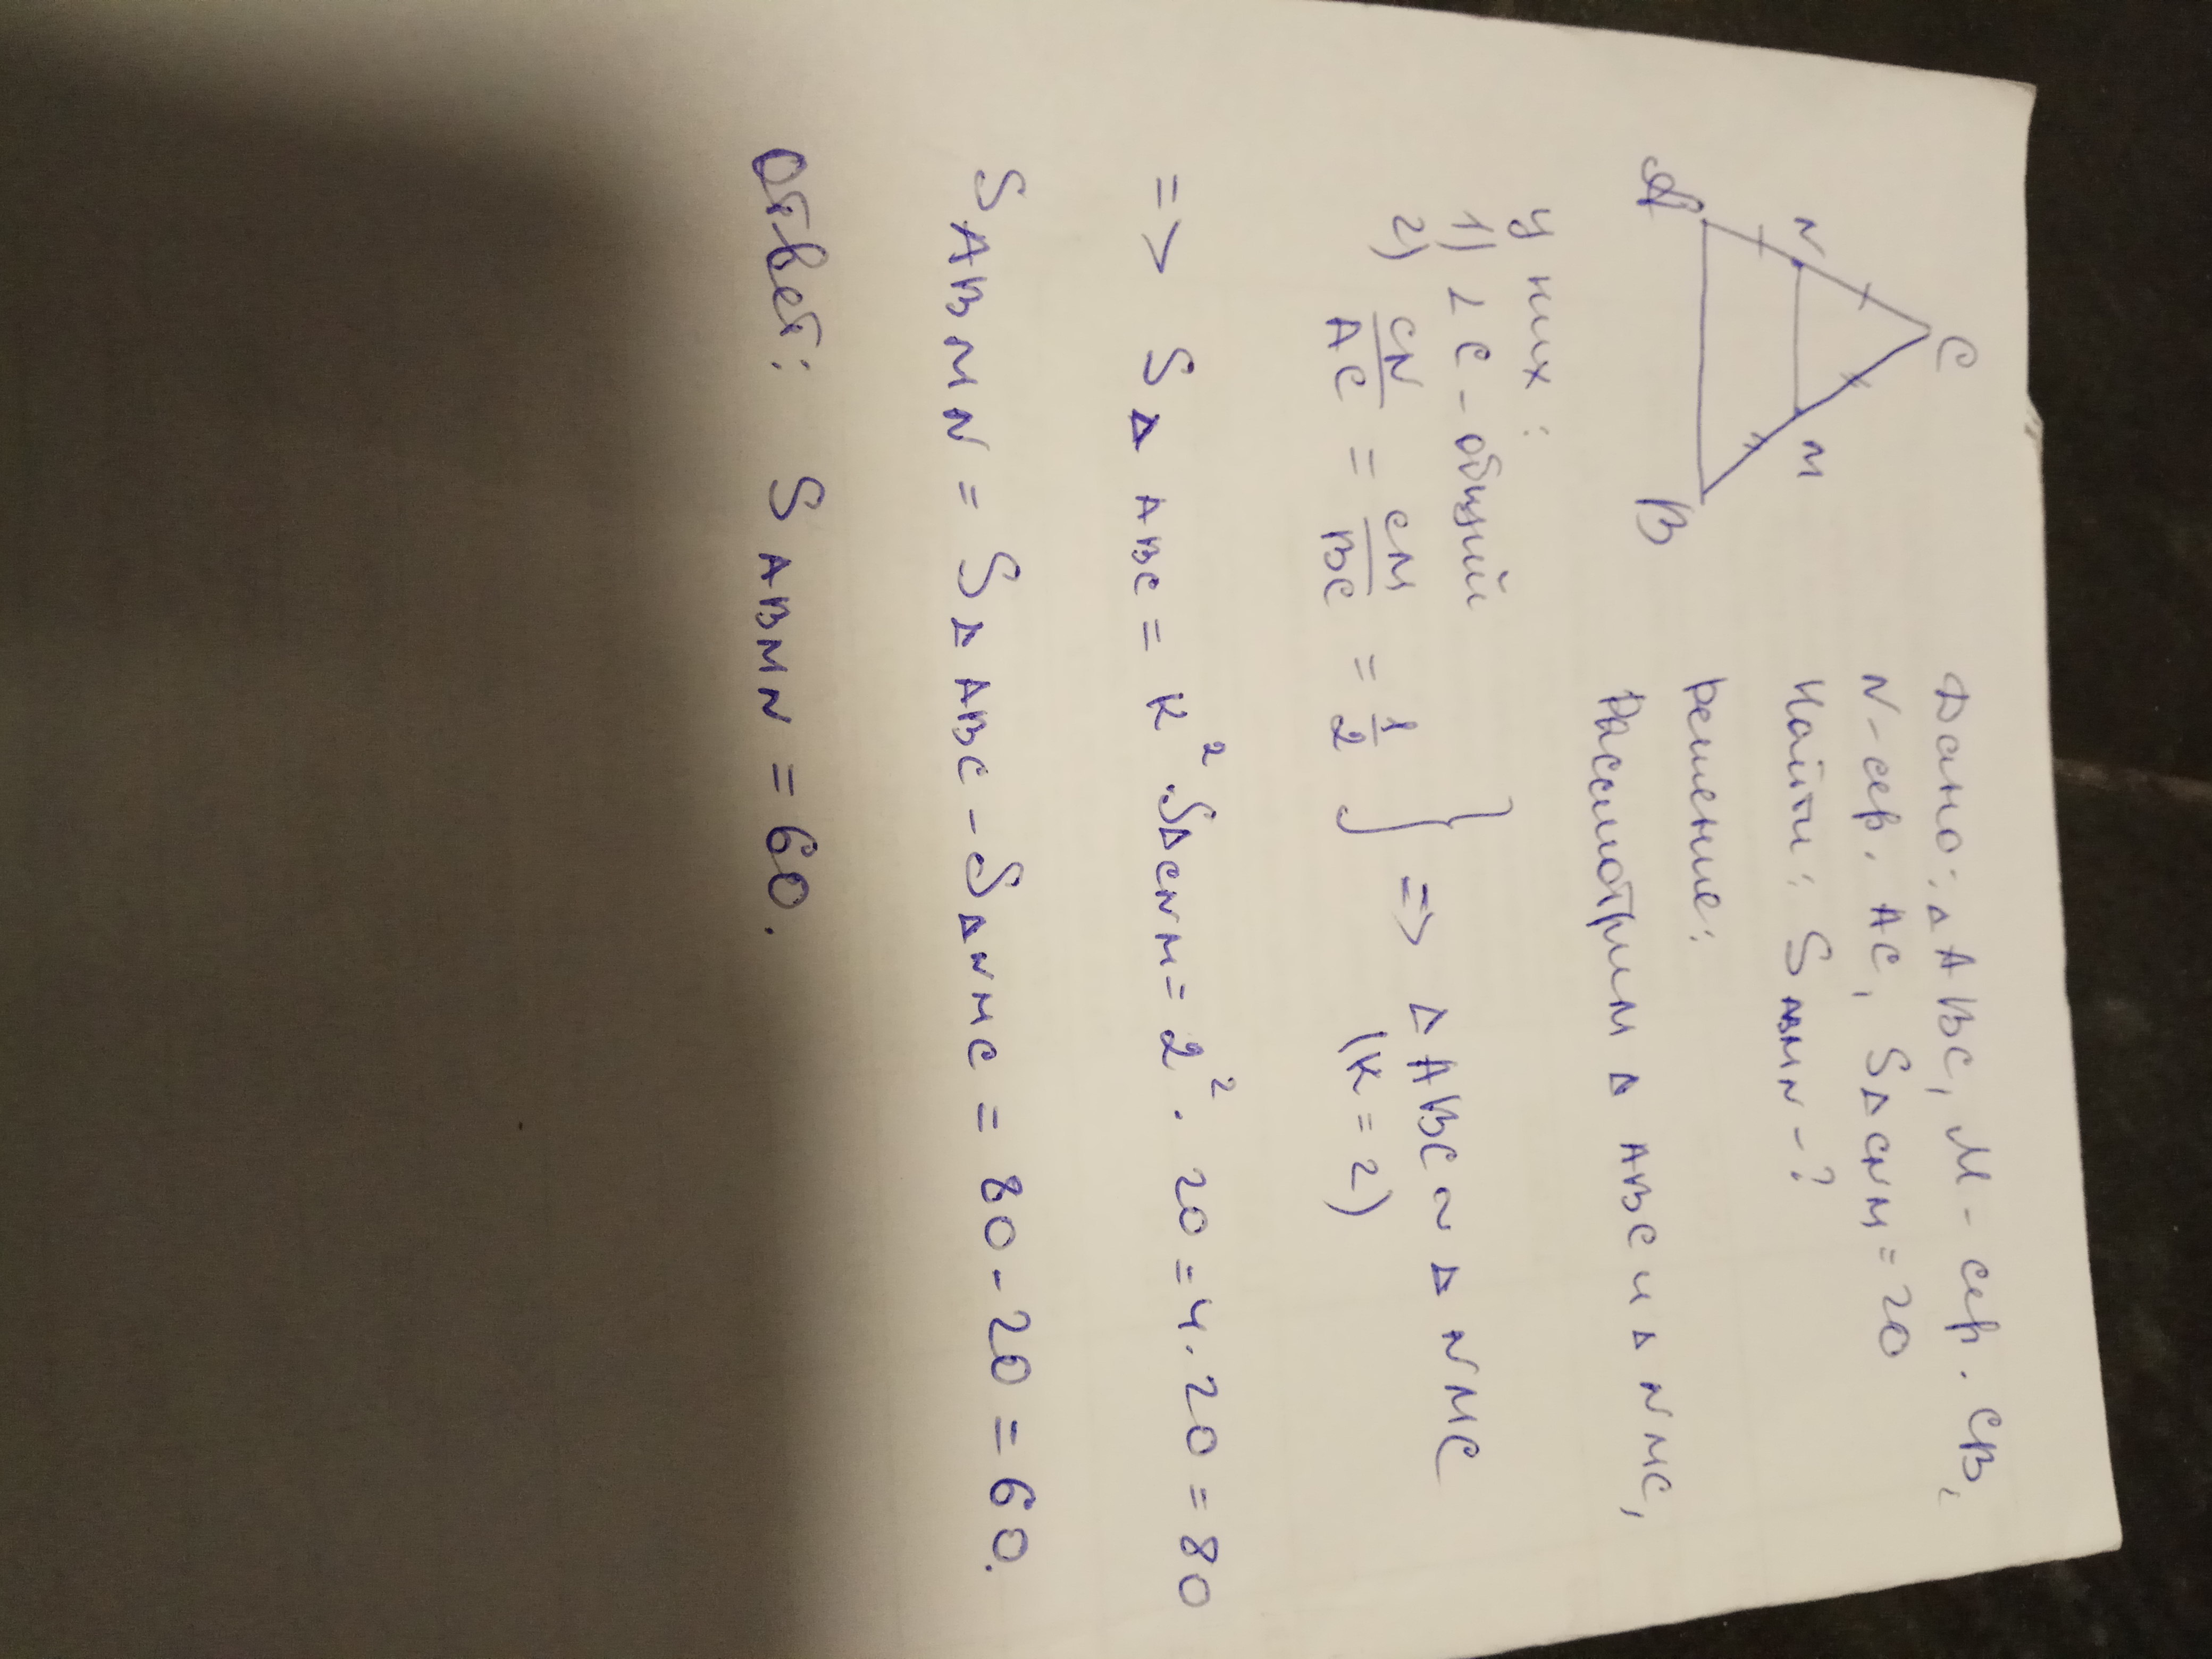 C
N
M
A
B
Дано: △ABC, M-сер. CB,
N-сер. AC, S△CNM=20
Найти: SABMN-?
Решение:
Рассмотрим △ABC и △NMC,
У них:
1) ∠C-общий
2) CN/AC = CM/BC = 1/2 } => △ABC ~ △NMC
(K=2)
=> S△ABC = K²·S△CNM = 2²·20=4·20=80
SABMN = S△ABC-S△NMC = 80-20=60.
Ответ: SABMN=60.